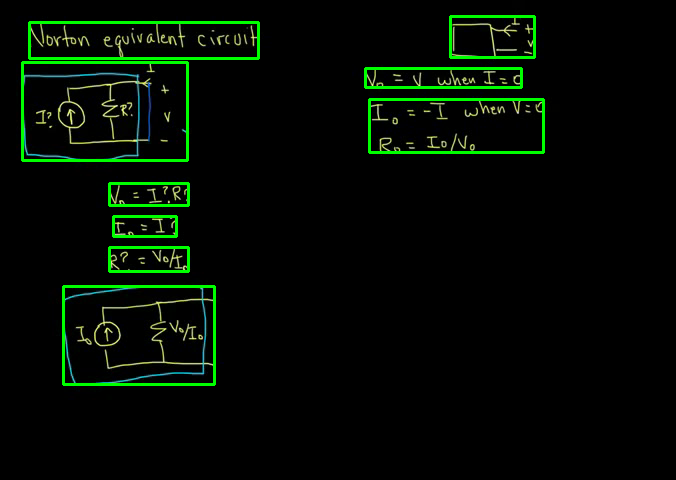 Norton equivalent circuit
I
+
I?
R?
V
-
V₀ = I?R?
I₀ = I?
R? = V₀/I₀
I₀
V₀/I₀
I
+
V
-
V₀ = V when I = 0
I₀ = -I when V = 0
R₀ = I₀/V₀